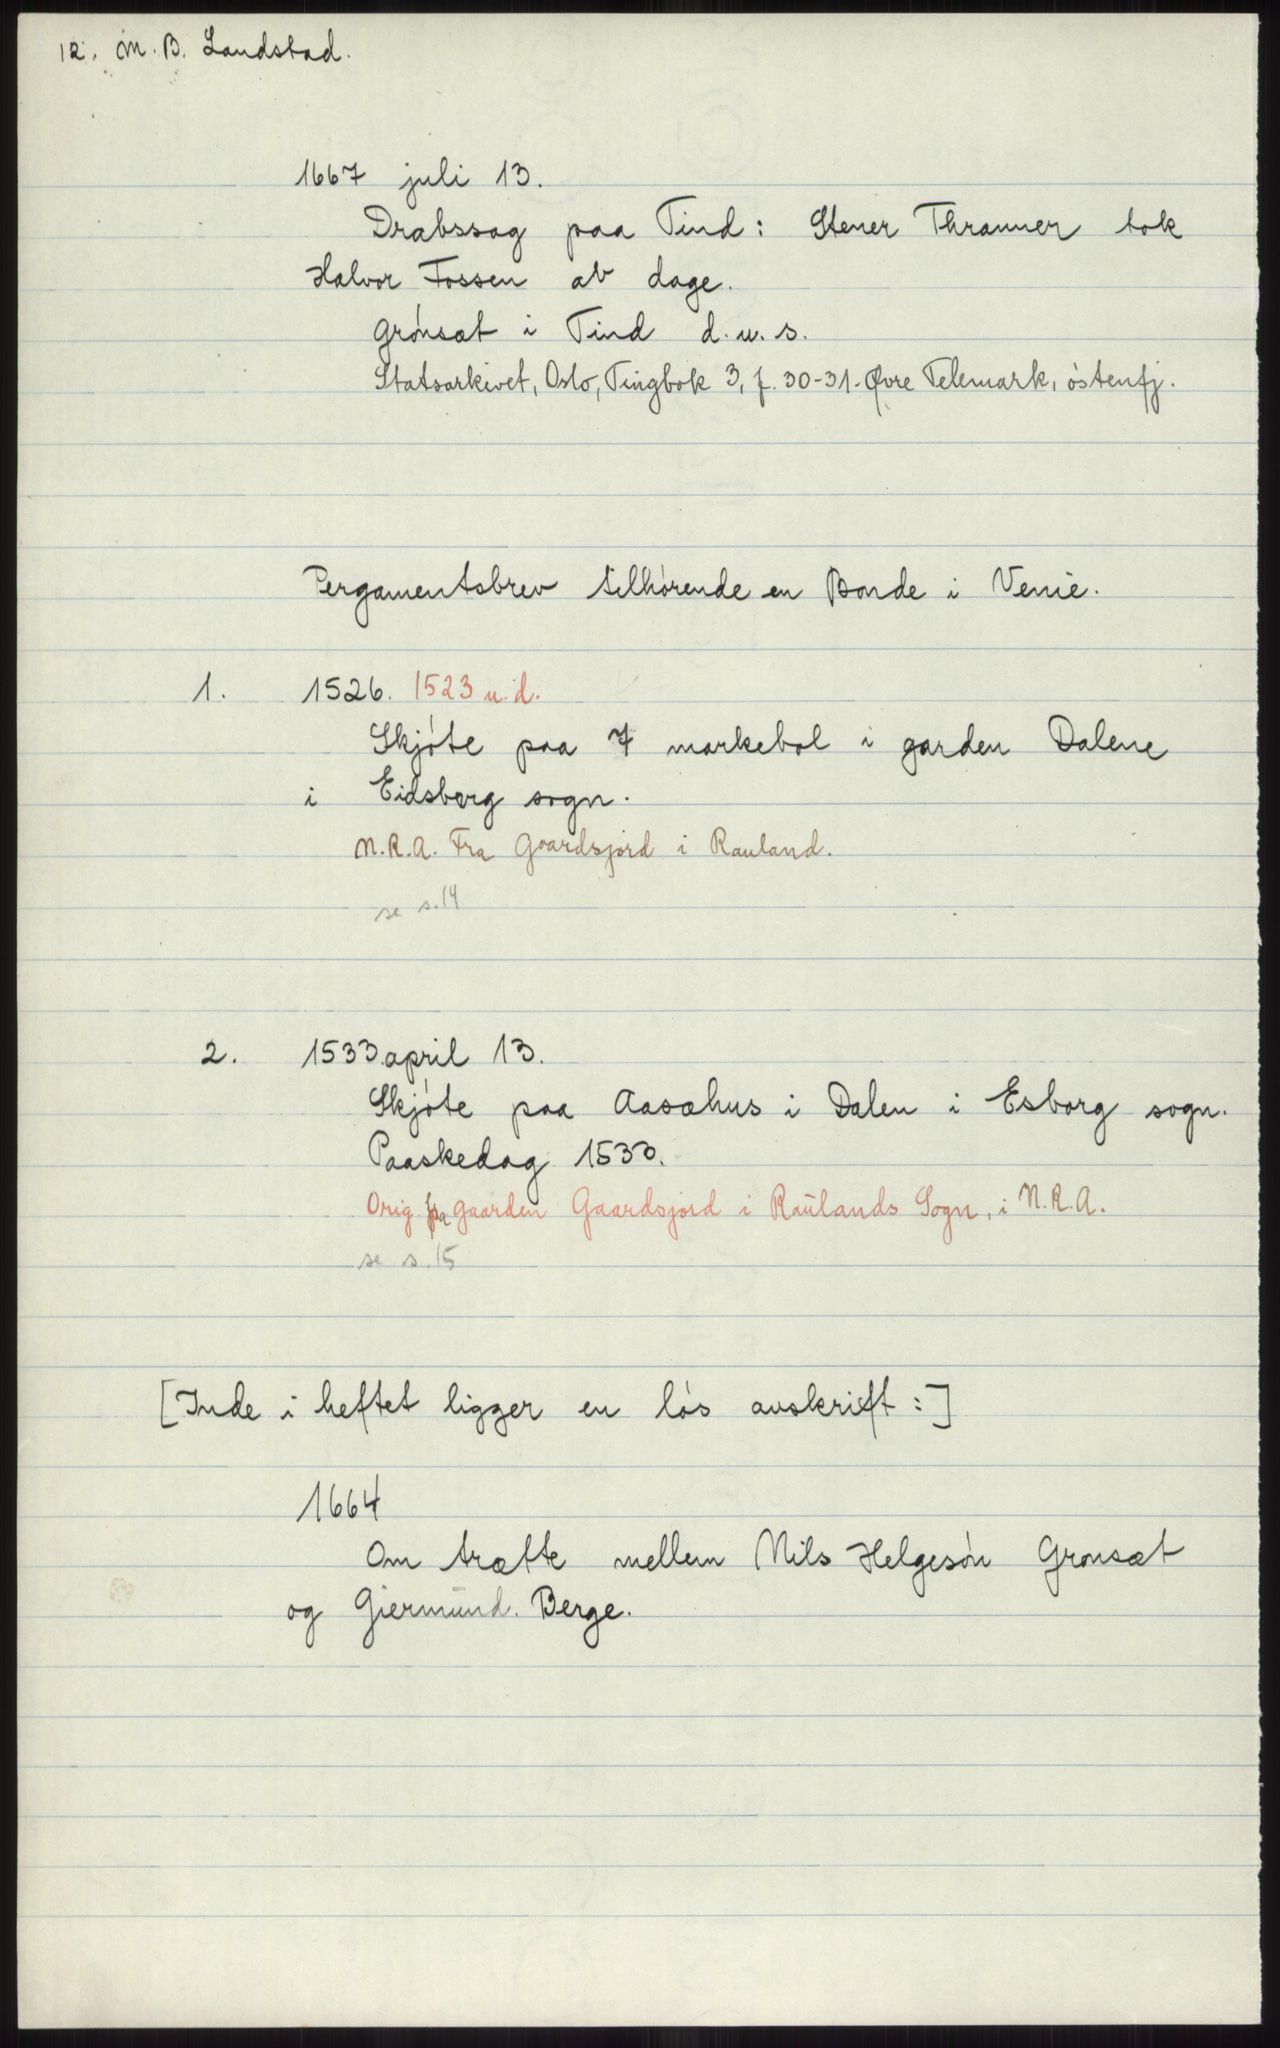 12. M. B. Landstad.
1667 juli 13.
Drabssag paa Tind: Stener Thranner tok
Halvor Fossen av dage.
Grónsæt i Tind d. u. s.
Statsarkivet, Oslo, Tingbok 3, f. 30-31. Øvre Telemark, östenfj.
Pergamentsbrev tilhörende en Bonde i Venie.
1. 1526. 1523 u. d.
Skjóte paa 7 markebol i garden Dalene
i Eidsborg sogn.
N.R.A. Fra Gaardsjord i Rauland.
se s. 14
2. 1533 april 13.
Skjóte paa Aasæhus i Dalen i Esborg sogn.
Paaskedag 1533.
Orig. fra gaarden Gaardsjord i Raulands Sogn, i N.R.A.
se s. 15
[Inde i heftet ligger en lós avskrift:]
1664
Om trætte mellem Nils Helgesón Gronsæt
og Giermund Berge.